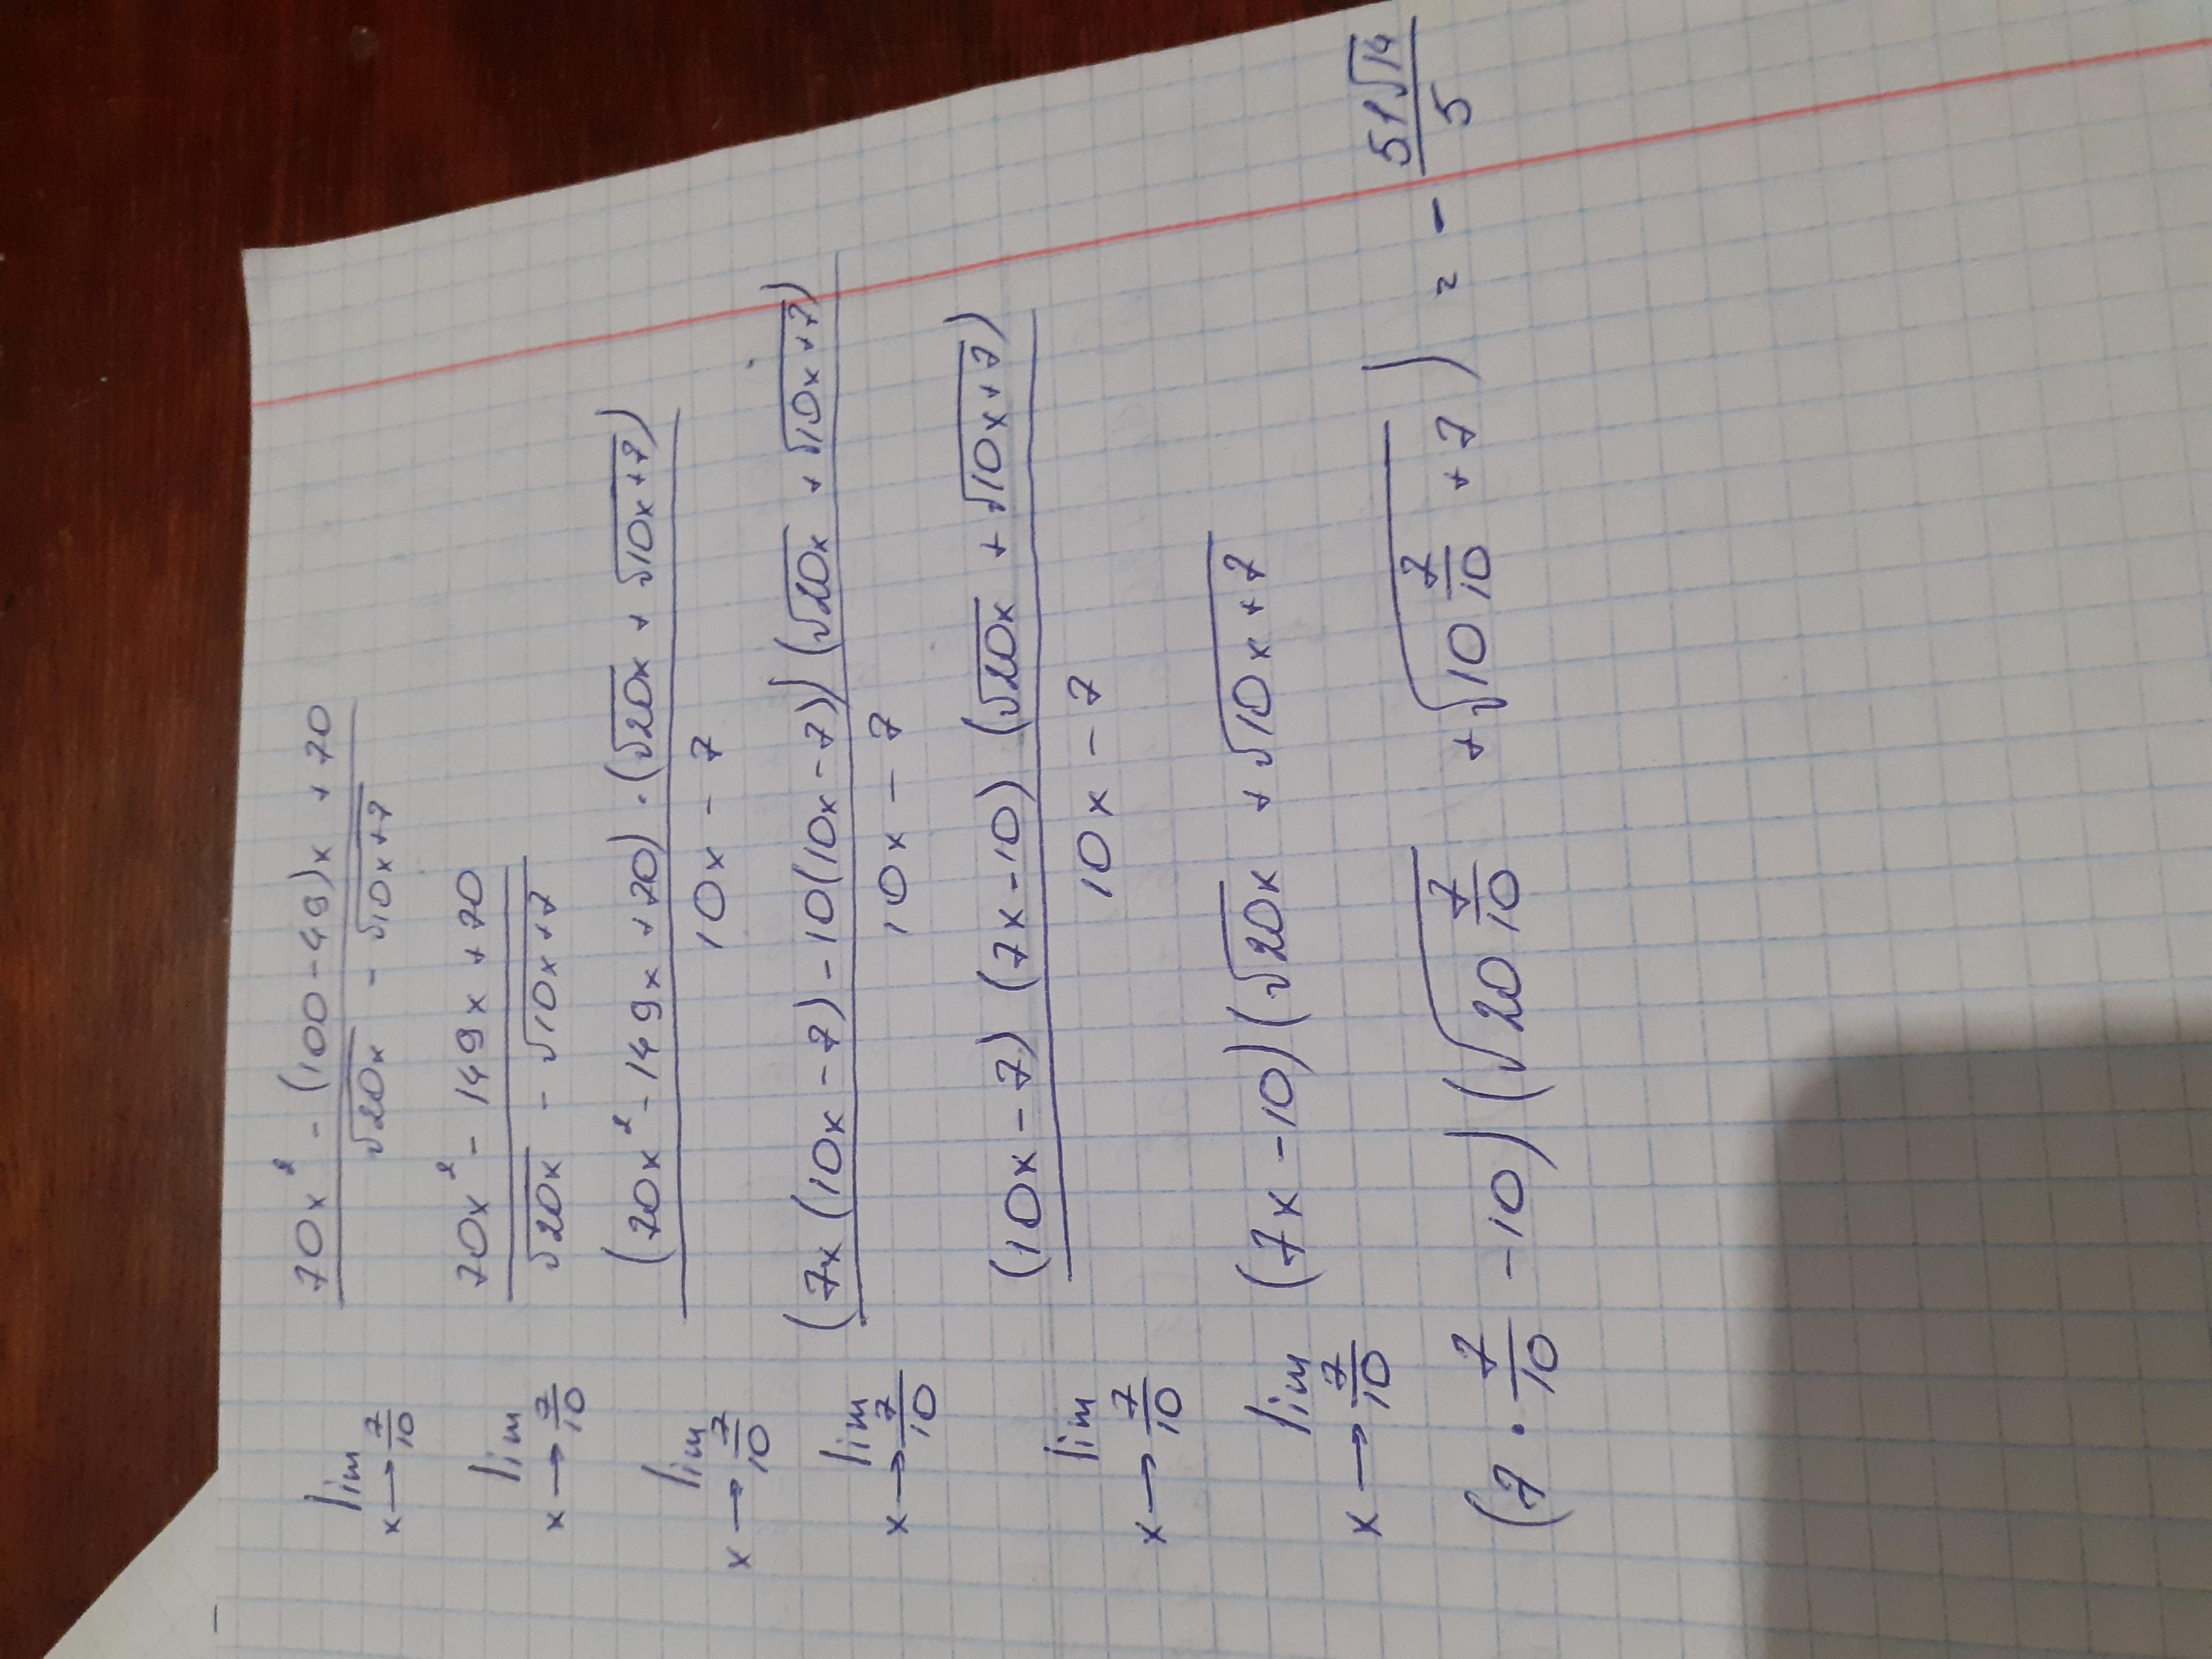 lim x→7/10 (70x² - (100-49)x + 70) / (√20x - √10x+7)
lim x→7/10 (70x² - 149x + 70) / (√20x - √10x+7)
lim x→7/10 ((70x² - 149x + 70) · (√20x + √10x+7)) / (10x - 7)
lim x→7/10 ((7x(10x - 7) - 10(10x - 7))(√20x + √10x+7)) / (10x - 7)
lim x→7/10 ((10x - 7)(7x - 10)(√20x + √10x+7)) / (10x - 7)
lim x→7/10 (7x - 10)(√20x + √10x+7
(7 · 7/10 - 10)(√20 7/10 + √10 7/10 + 7) = - 51√14/5